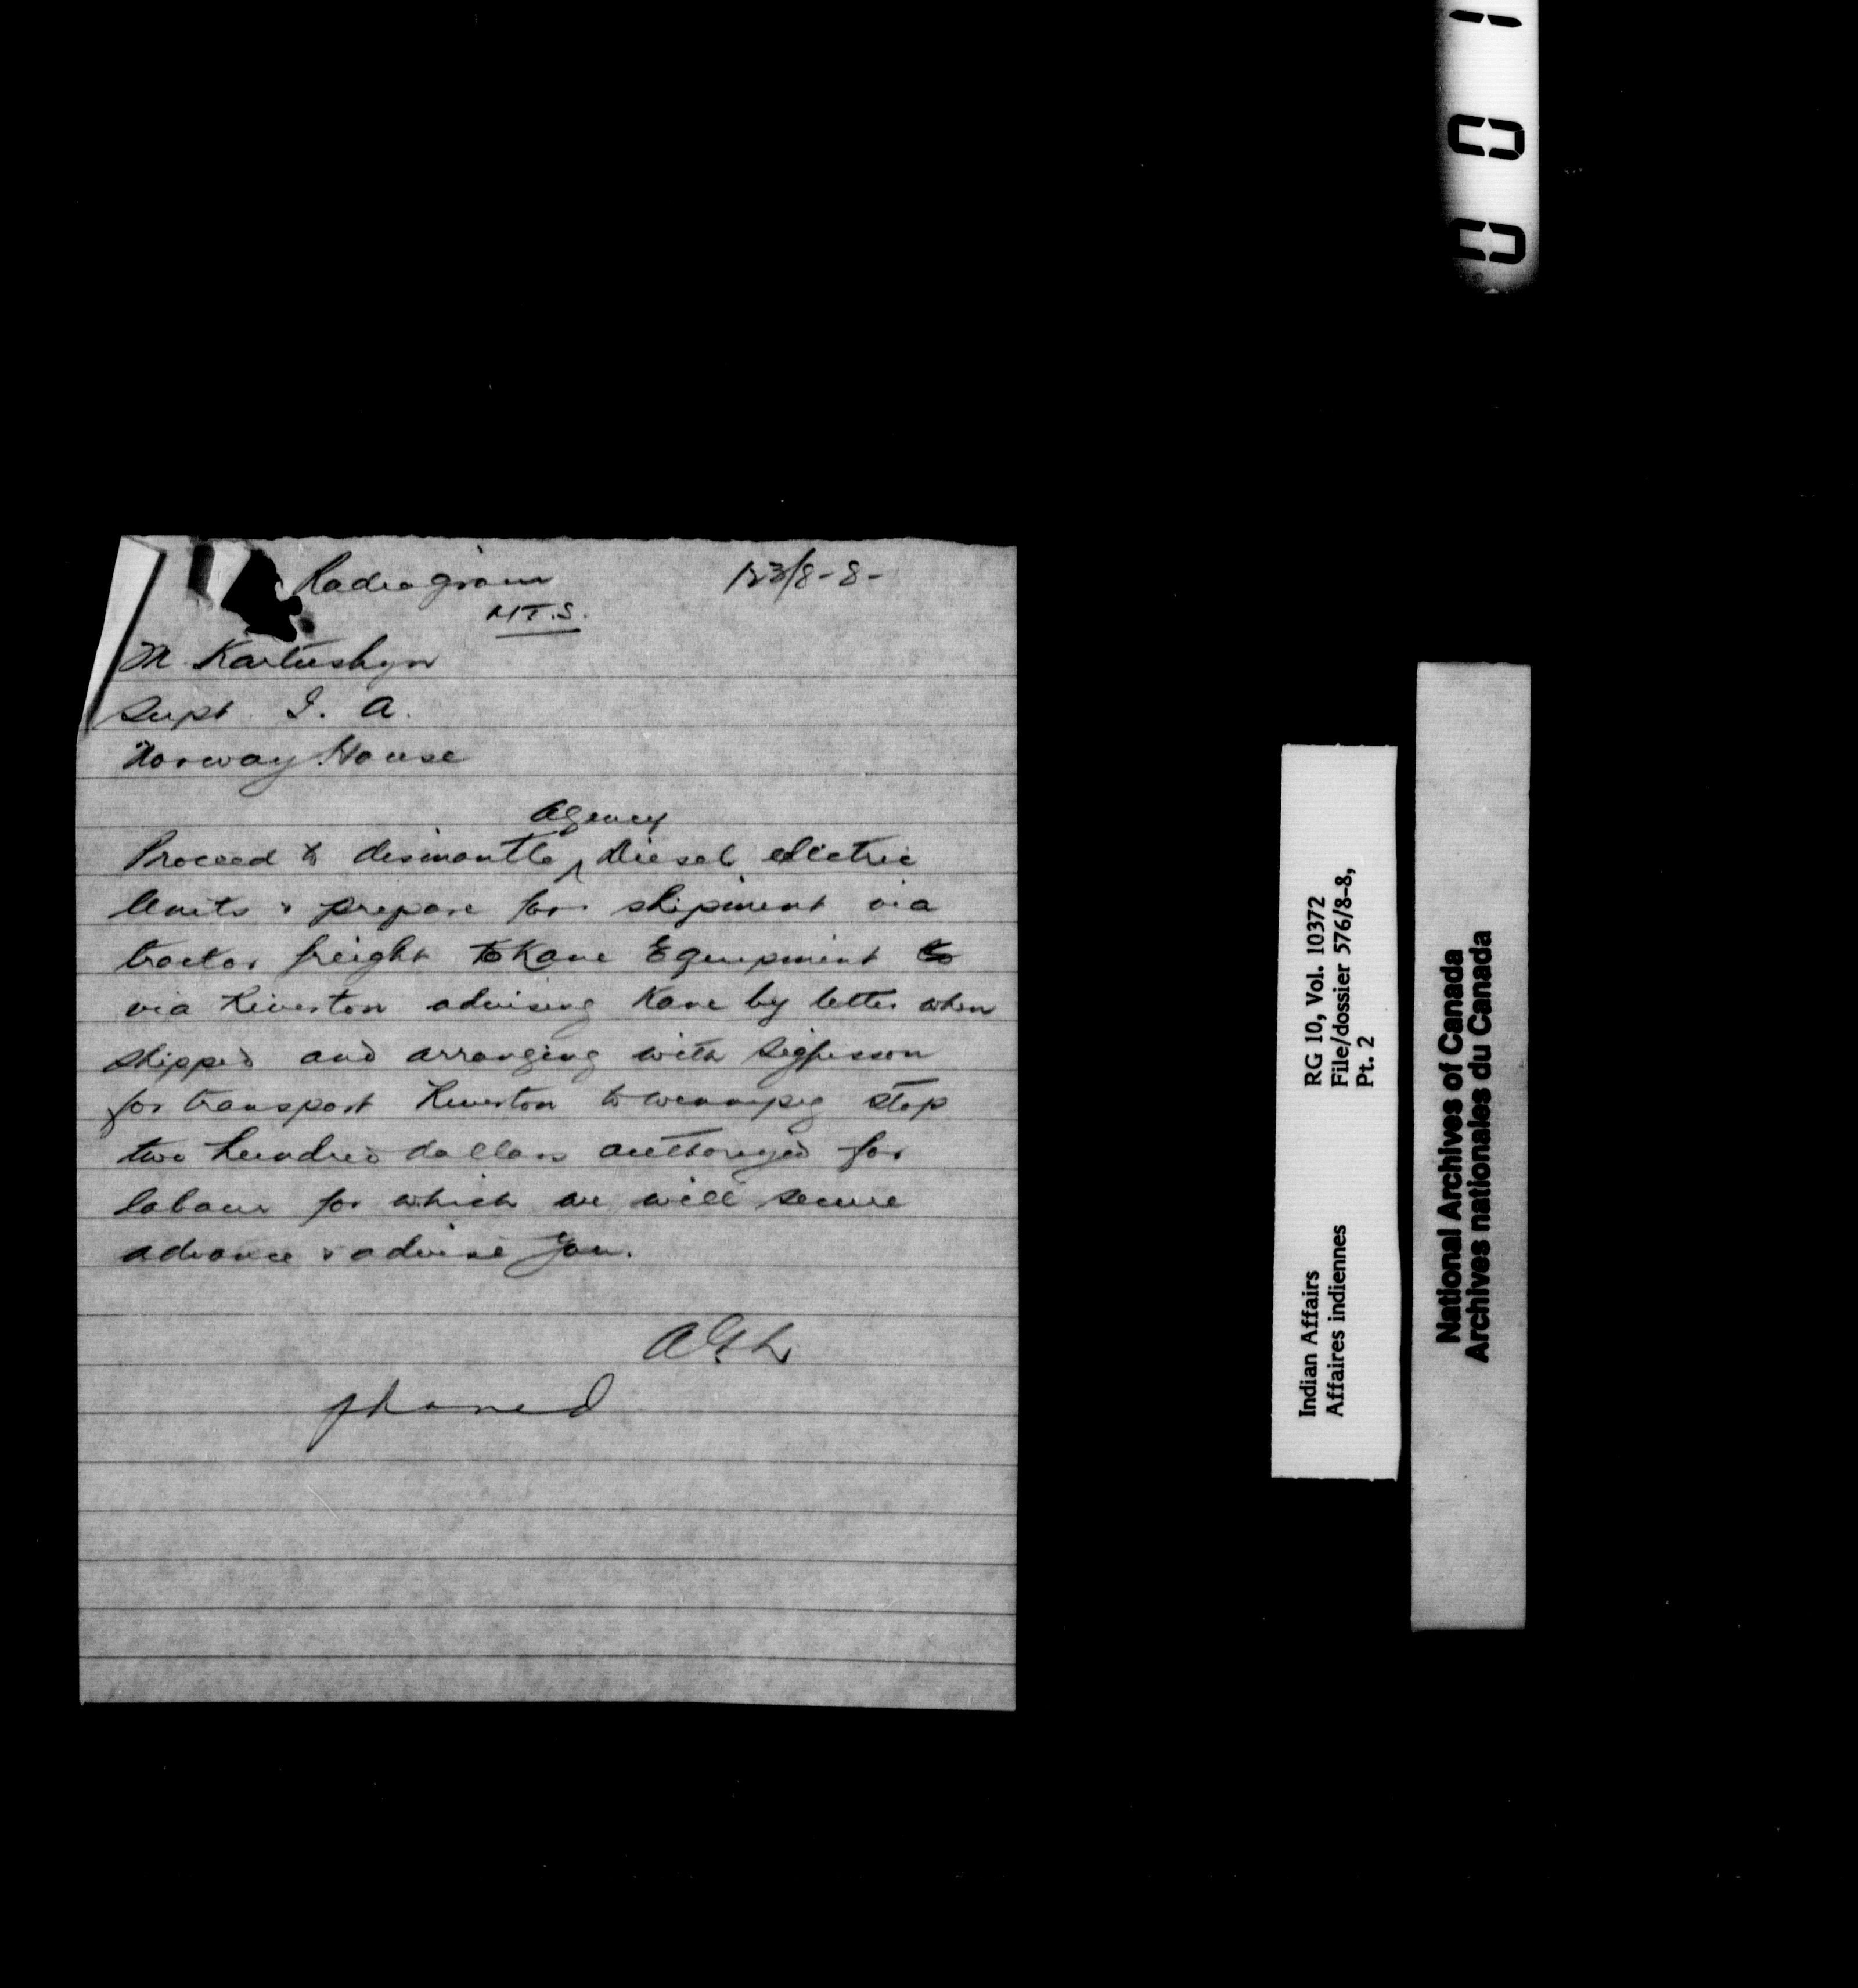 Radiogram 123/8-8-
MT.S.
M. Kartushyn
Supt. I. A.
Norway House
Agency
Proceed to dismantle ^ Diesel electric
Units & prepare for shipment via
tractor freight to Kane Equipment
via Riverton advising Kane by letter when
shipped and arranging with Sigfusson
for transport Riverton to Winnipeg stop
two hundred dollars authorized for
labour for which we will secure
advance & advise you.
phoned
001
Indian Affairs RG 10, Vol. 10372
Affaires indiennes File/dossier 576/8-8,
Pt. 2
National Archives of Canada
Archives nationales du Canada